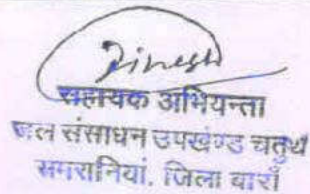 Dinesh
सहायक अभियन्ता
जल संसाधन उपखण्ड चतुर्थ
समरानियां. जिला बारॉं